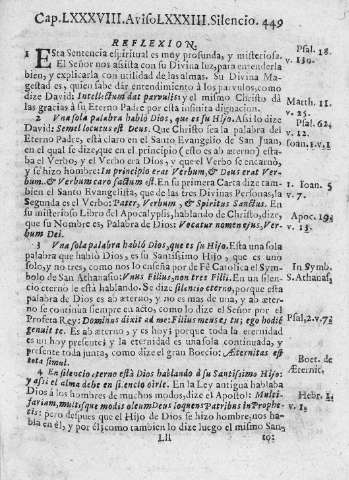 Cap. LXXXVIII. Aviso LXXXIII. Silencio. 449
REFLEXION.
1 ESta Sentencia espiritual es muy profunda, y misteriosa.
El Señor nos assista con su Divina luz, para entenderla
bien, y explicarla con utilidad de las almas. Su Divina Ma-
gestad es, quien sabe dár entendimiento à los parvulos, como
dize David: Intellectum dat parvulis: y el mismo Christo dà
las gracias à su Eterno Padre por esta infinita dignacion.
2 Vna sola palabra habló Dios, que es su Hijo. Assi lo dize
David: Semel locutus est Deus. Que Christo sea la palabra del
Eterno Padre, està claro en el Santo Evangelio de San Juan,
en el qual se dize, que en el principio (esto es ab æterno) esta-
ba el Verbo, y el Verbo era Dios, y que el Verbo se encarnò,
y se hizo hombre: In principio erat Verbum, & Deus erat Ver-
bum. & Verbum caro factum est. En su primera Carta dize tam-
bien el Santo Evangelista, que de las tres Divinas Personas, la
Segunda es el Verbo: Pater, Verbum, & Spiritus Sanctus. En
su misterioso Libro del Apocalypsis, hablando de Christo, dize,
que su Nombre es, Palabra de Dios: Vocatur nomen ejus, Ver-
bum Dei.
3 Vna sola palabra habló Dios, que es su Hijo. Esta una sola
palabra que habló Dios, es su Santissimo Hijo, que es uno
solo, y no tres, como nos lo enseña por de Fè Catolica el Symbo-
lo de San Athanasio: Vnus Filius, non tres Filii. En un silen-
cio eterno le està hablando. Se dize silencio eterno, porque esta
palabra de Dios es ab æterno, y no es mas de una, y ab æter-
no le continua siempre en acto, como lo dize el Señor por el
Profeta Rey: Dominus dixit ad me: Filius meus es tu; ego hodie
genui te. Es ab æterno, y es hoy; porque toda la eternidad
es un hoy presente; y la eternidad es una sola continuada, y
presente toda junta, como dize el gran Boecio: Æternitas est
tota simul.
4 En silencio eterno està Dios hablando à su Santissimo Hijo:
y assi el alma debe en silencio oirle. En la Ley antigua hablaba
Dios à los hombres de muchos modos, dize el Apostol: Multi-
fariam, multisque modis olim Deus loquens Patribus in Prophe-
tis: pero despues que el Hijo de Dios se hizo hombre, nos ha-
bla en èl, y por èl; como tambien lo dize luego el mismo San-
Lll
to:
Psal. 18.
v. 130.
Matth. 11.
v. 25.
Psal. 62,
v. 12.
Ioan. 1. v. 1
1 Ioan. 5
v. 7.
Apoc. 19.
v. 13.
In Symb.
S. Athanas.
Psal, 2. v. 7
Boet. de
Æternit,
Hebr. 1.
v. 1.